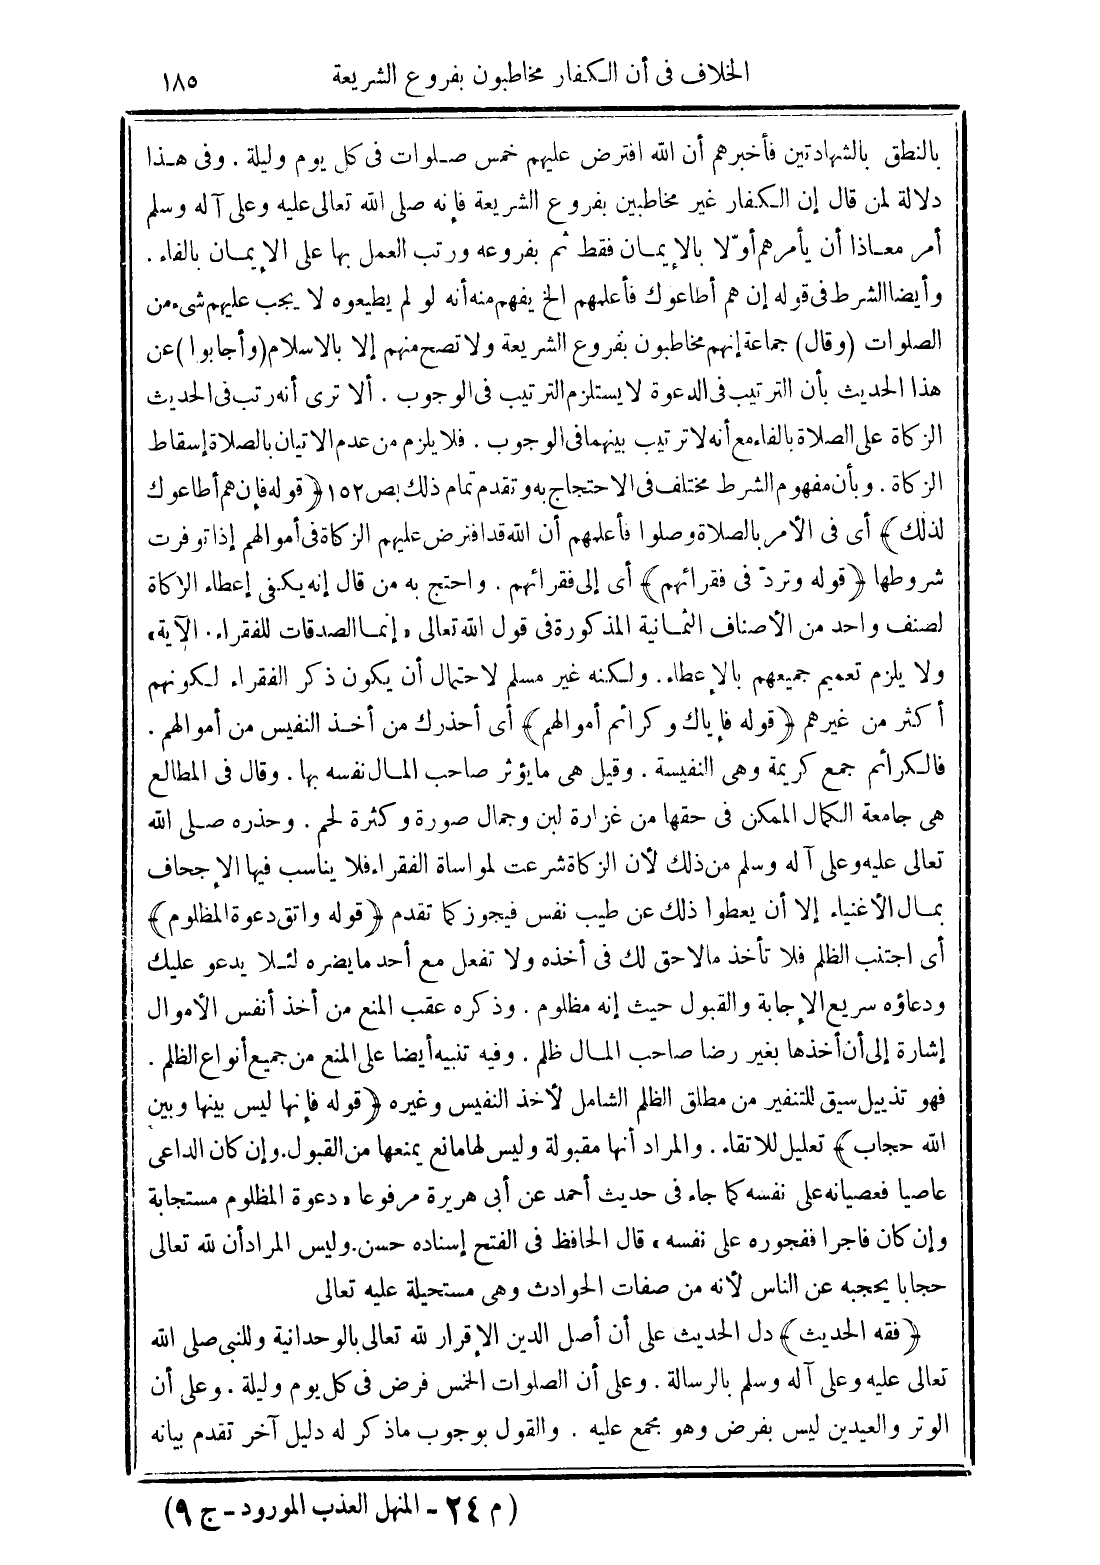 الخلاف فى أن الكفار مخاطبون بفروع الشريعة ١٨٥
بالنطق بالشهادتين فأخبرهم أن الله افترض عليهم خمس صلوات فى كل يوم وليلة . وفى هذا
دلالة لمن قال إن الكفار غير مخاطبين بفروع الشريعة فإنه صلى الله تعالى عليه وعلى آله وسلم
أمر معاذا أن يأمرهم أوّلا بالإيمان فقط ثم بفروعه ورتب العمل بها على الإيمان بالفاء .
وأيضا الشرط فى قوله إن هم أطاعوك فأعلمهم الخ يفهم منه أنه لو لم يطيعوه لا يجب عليهم شىء من
الصلوات (وقال) جماعة إنهم مخاطبون بفروع الشريعة ولا تصح منهم إلا بالاسلام (وأجابوا) عن
هذا الحديث بأن الترتيب فى الدعوة لا يستلزم الترتيب فى الوجوب . ألا ترى أنه رتب فى الحديث
الزكاة على الصلاة بالفاء مع أنه لا ترتيب بينهما فى الوجوب . فلا يلزم من عدم الاتيان بالصلاة إسقاط
الزكاة . وبأن مفهوم الشرط مختلف فى الاحتجاج به وتقدم تمام ذلك بص ١٥٢ ﴿قوله فإن هم أطاعوك
لذلك﴾ أى فى الأمر بالصلاة وصلوا فأعلمهم أن الله قد افترض عليهم الزكاة فى أموالهم إذا توفرت
شروطها ﴿قوله وتردّ فى فقرائهم﴾ أى إلى فقرائهم . واحتج به من قال إنه يكفى إعطاء الزكاة
لصنف واحد من الأصناف الثمانية المذكورة فى قول الله تعالى «إنما الصدقات للفقراء . الآية»
ولا يلزم تعميم جميعهم بالإعطاء . ولكنه غير مسلم لاحتمال أن يكون ذكر الفقراء لكونهم
أكثر من غيرهم ﴿قوله فإياك وكرائم أموالهم﴾ أى أحذرك من أخذ النفيس من أموالهم .
فالكرائم جمع كريمة وهى النفيسة . وقيل هى ما يؤثر صاحب المال نفسه بها . وقال فى المطالع
هى جامعة الكمال الممكن فى حقها من غزارة لبن وجمال صورة وكثرة لحم . وحذره صلى الله
تعالى عليه وعلى آله وسلم من ذلك لأن الزكاة شرعت لمواساة الفقراء فلا يناسب فيها الإجحاف
بمال الأغنياء إلا أن يعطوا ذلك عن طيب نفس فيجوز كما تقدم ﴿قوله واتق دعوة المظلوم﴾
أى اجتنب الظلم فلا تأخذ مالا حق لك فى أخذه ولا تفعل مع أحد ما يضره لئلا يدعو عليك
ودعاؤه سريع الإجابة والقبول حيث إنه مظلوم . وذكره عقب المنع من أخذ أنفس الأموال
إشارة إلى أن أخذها بغير رضا صاحب المال ظلم . وفيه تنبيه أيضا على المنع من جميع أنواع الظلم .
فهو تذييل سيق للتنفير من مطلق الظلم الشامل لأخذ النفيس وغيره ﴿قوله فإنها ليس بينها وبين
الله حجاب﴾ تعليل للاتقاء . والمراد أنها مقبولة وليس لها مانع يمنعها من القبول . وإن كان الداعى
عاصيا فعصيانه على نفسه كما جاء فى حديث أحمد عن أبى هريرة مرفوعا «دعوة المظلوم مستجابة
وإن كان فاجرا ففجوره على نفسه» قال الحافظ فى الفتح إسناده حسن . وليس المراد أن لله تعالى
حجابا يحجبه عن الناس لأنه من صفات الحوادث وهى مستحيلة عليه تعالى
﴿فقه الحديث﴾ دل الحديث على أن أصل الدين الإقرار لله تعالى بالوحدانية وللنبى صلى الله
تعالى عليه وعلى آله وسلم بالرسالة . وعلى أن الصلوات الخمس فرض فى كل يوم وليلة . وعلى أن
الوتر والعيدين ليس بفرض وهو مجمع عليه . والقول بوجوب ما ذكر له دليل آخر تقدم بيانه
(م ٢٤ - المنهل العذب المورود - ج ٩)